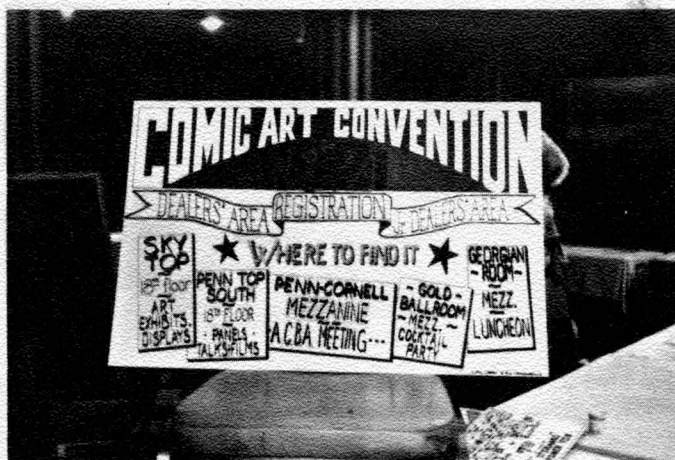 COMIC ART CONVENTION
DEALERS' AREA
REGISTRATION
DEALERS' AREA
WHERE TO FIND IT
SKY
TOP
18th floor
ART
EXHIBITS
DISPLAYS
PENN TOP
SOUTH
18TH FLOOR
- PANELS -
TALKS FILMS
PENN-CORNELL
MEZZANINE
ACBA MEETING---
- GOLD -
BALLROOM
~ MEZZ. ~
COCKTAIL
PARTY
GEORGIAN
- ROOM -
MEZZ.
LUNCHEON